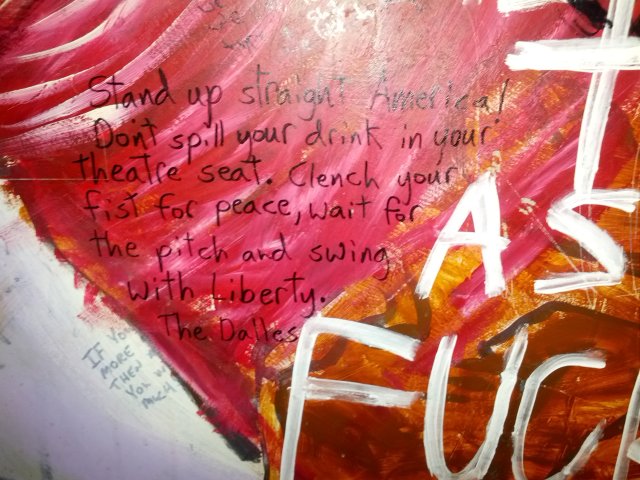 Stand up straight America!
Don't spill your drink in your
theatre seat. Clench your
fist for peace, wait for
the pitch and swing
with Liberty.
The Dalles
AS
FUCK
IF YOU
MORE
THEN
YOU